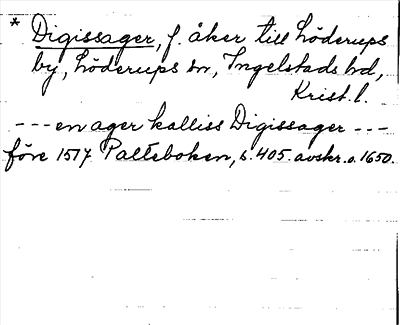 * Digissager, f. åker till Löderups
by, Löderups sn, Ingelstads hd,
Krist. l.
--- en ager kalliss Digissager ---
före 1517 Palteboken, s. 405. avskr. o. 1650.